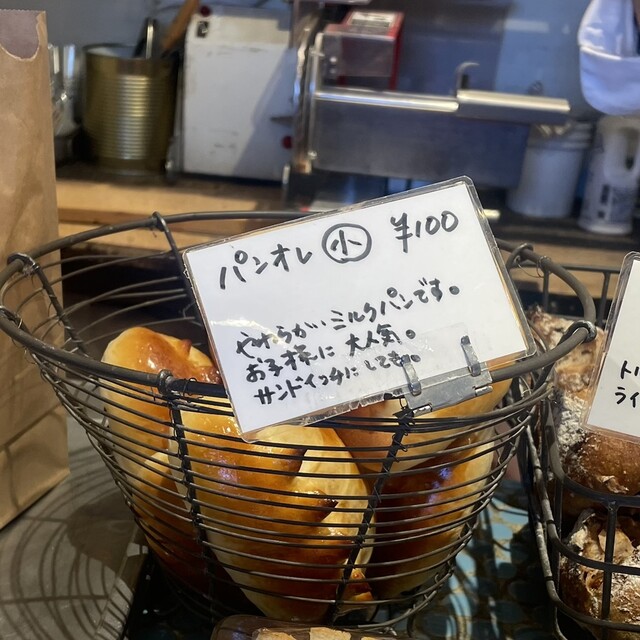 パンオレ ㊙小 ¥100
やわらかいミルクパンです。
お子様に大人気。
サンドイッチにしても。
ト
ライ